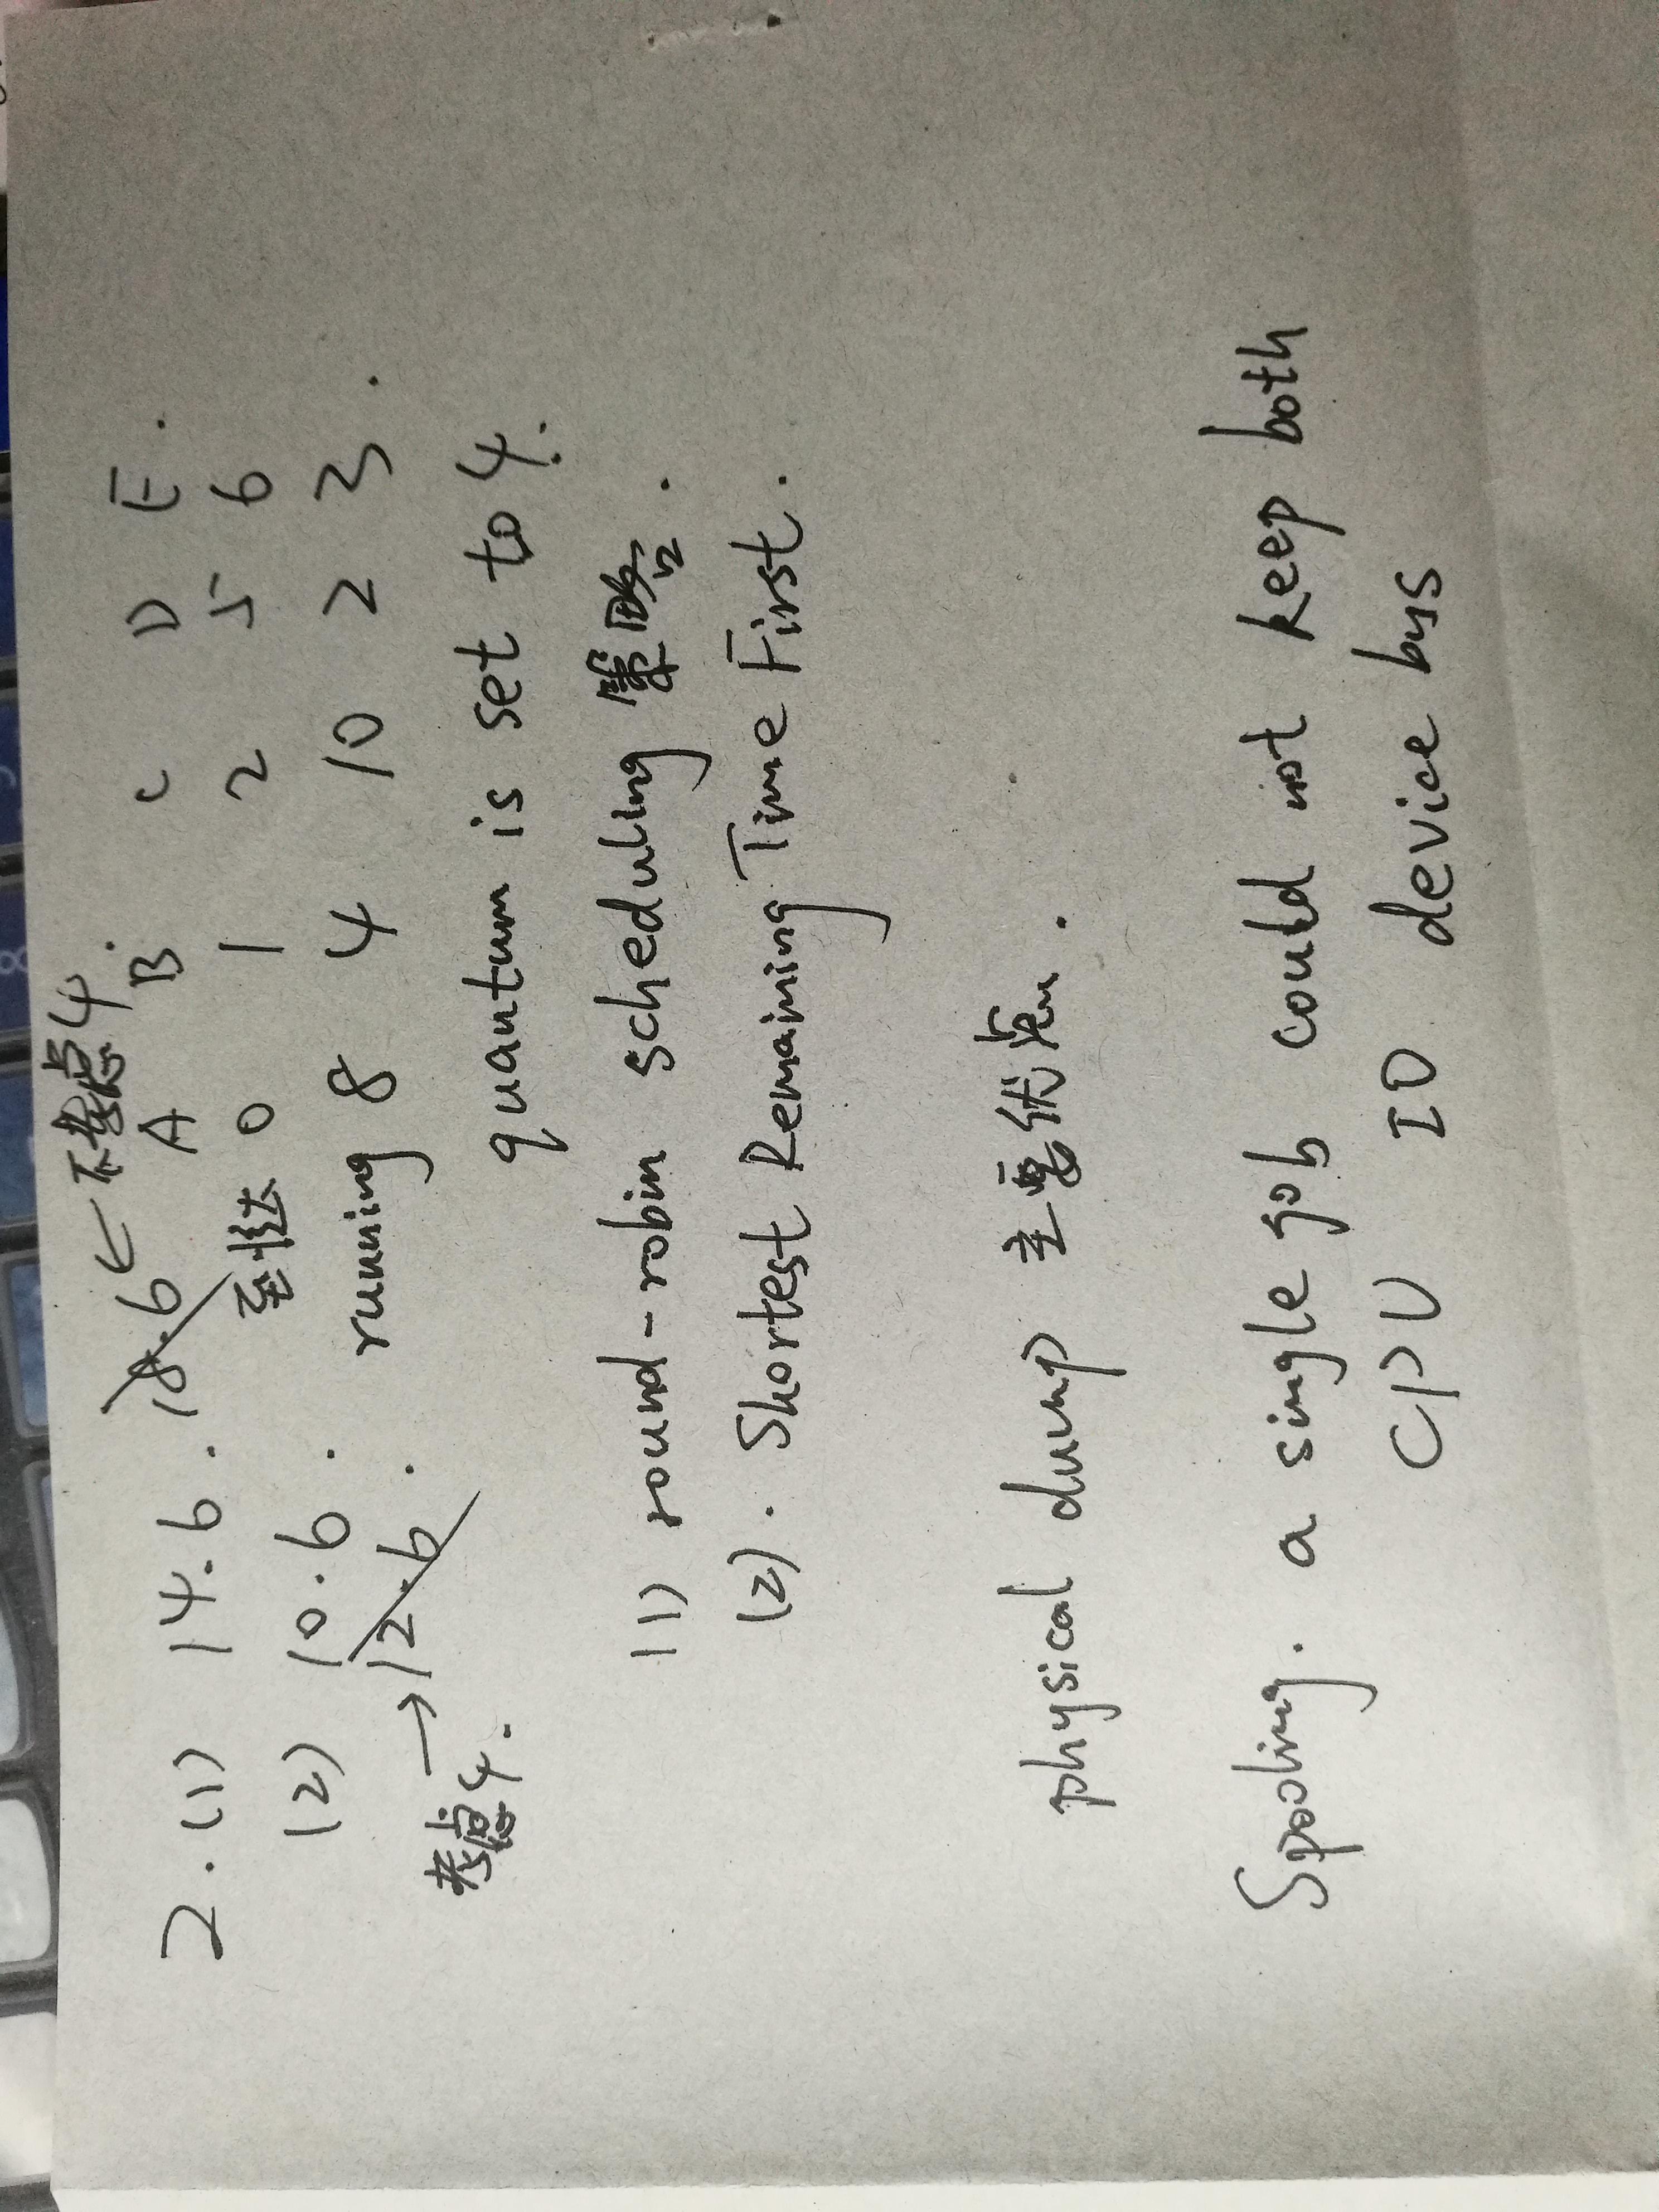 不考虑4.
2.(1) 14.6. 18.6 ← A B C D E.
到达 0 1 2 5 6
(2) 10.6.
running 8 4 10 2 3.
→ 12.6.
考虑4.
quantum is set to 4.
(1) round-robin scheduling 策略.
(2). Shortest Remaining Time First.
physical dump 主要优点.
Spooling. a single job could not keep both
CPU IO device bus